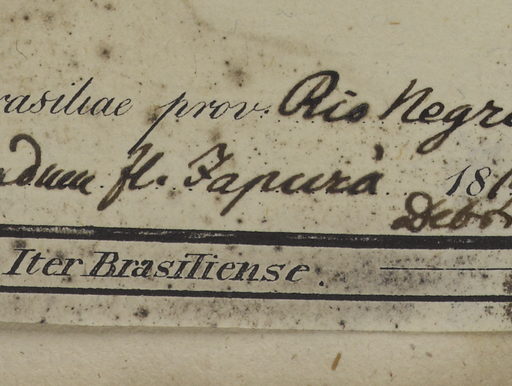 rasiliae prov. Rio Negro
adum fl. Japurà 181
Debr
Iter Brasiliense.